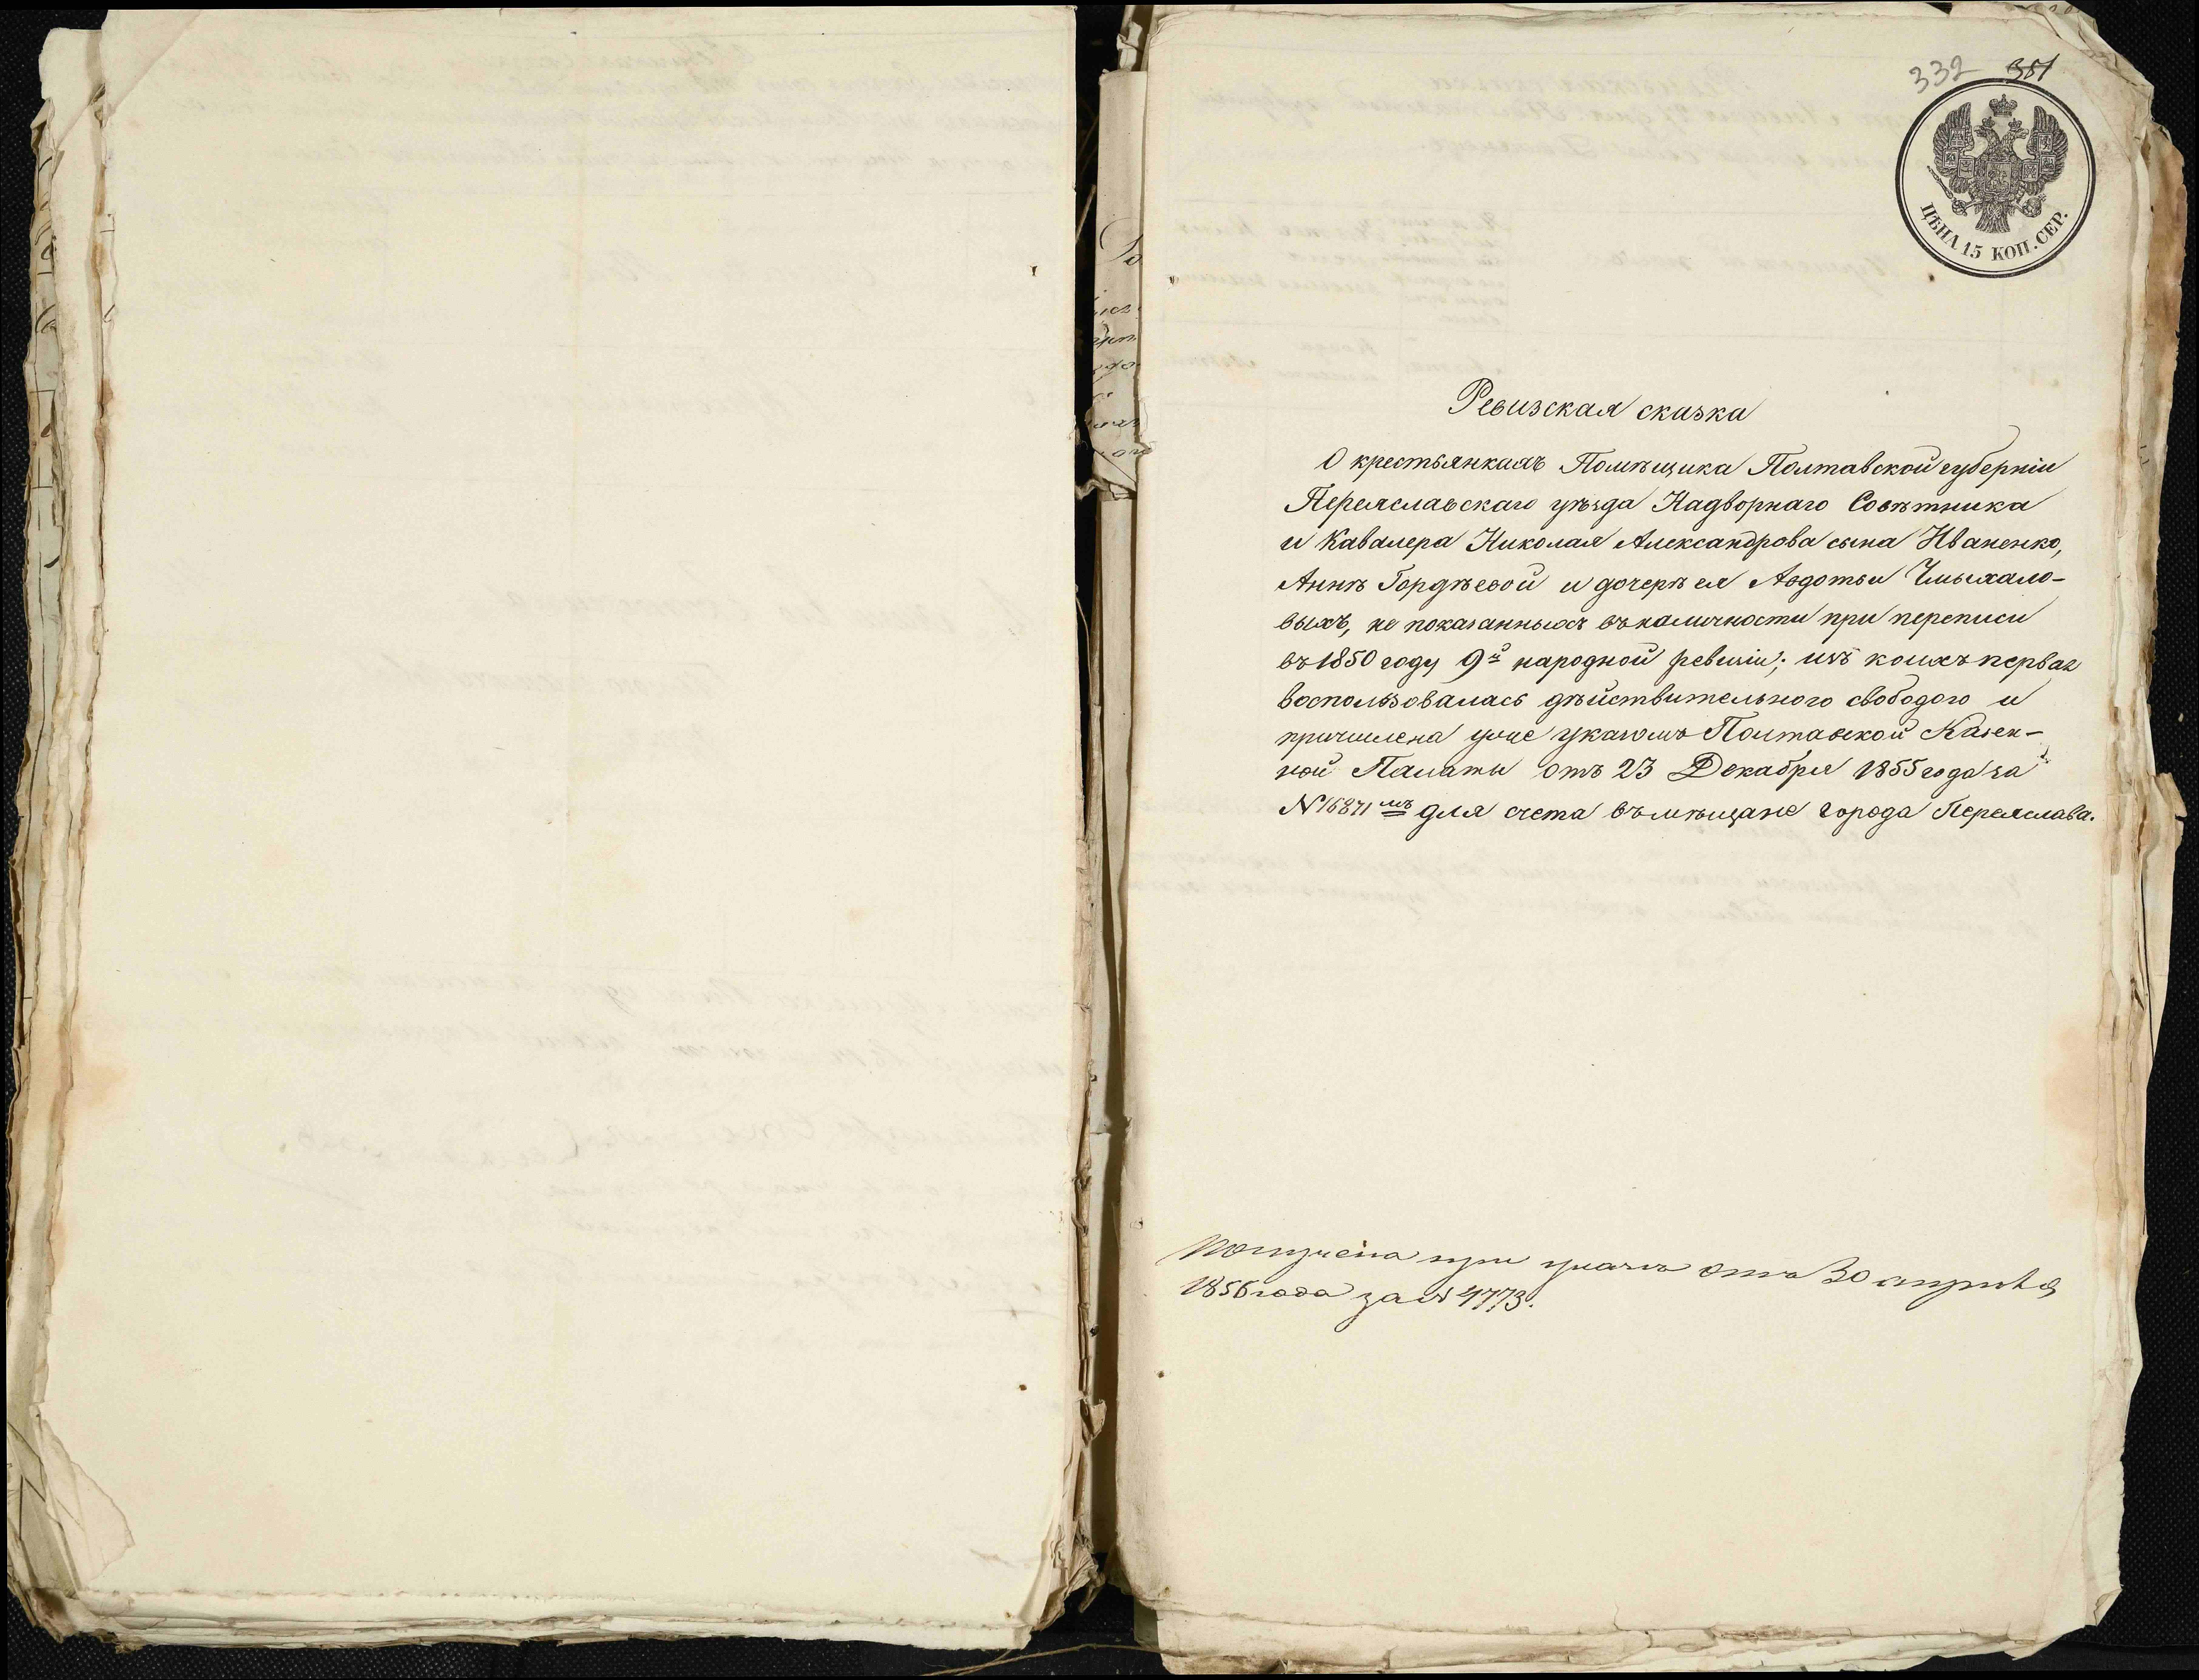 332 381
ЦѢНА 15 КОП. СЕР.
Ревизская сказка
О крестьянкахъ Помѣщика Полтавской губерніи
Переяславскаго уѣзда Надворнаго Совѣтника
и Кавалера Николая Александрова сына Иваненко,
Аннѣ Гордѣевой и дочерѣ ея Авдотьи Чмыхало-
выхъ, не показанныхъ въ наличности при переписи
въ 1850 году 9й народной ревизіи; изъ коихъ первая
воспользовалась дѣйствительною свободою и
причислена уже указомъ Полтавской Казен-
ной Палаты отъ 23 Декабря 1855 года за
№ 16871мъ для счета въ мѣщане города Переяслава.
Получена при указѣ отъ 30 апрѣля
1856 года за № 4773.